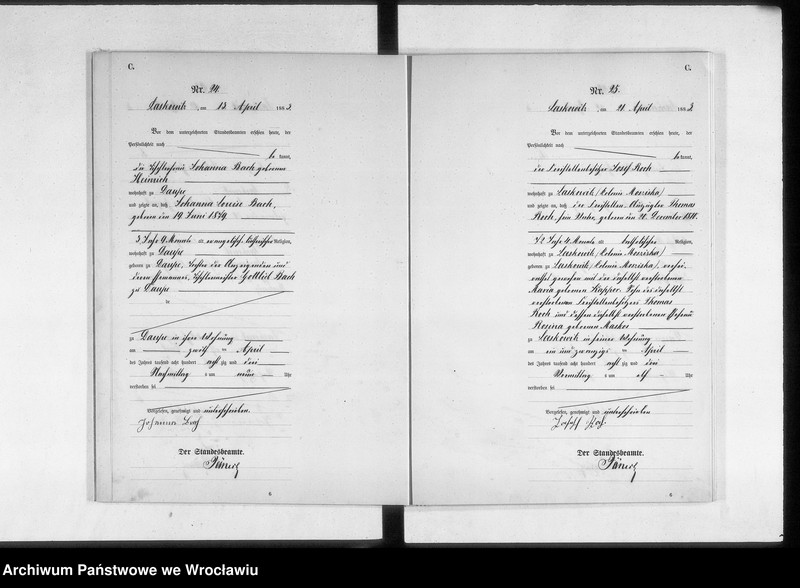 C.
Nr. 24.
Laskowitz, am 13 April 1883.
Vor dem unterzeichneten Standesbeamten erschien heute, der
Persönlichkeit nach
be kannt,
die Johanna Bach geborene
Heinrich
wohnhaft zu Daupe
und zeigte an, daß Johanna Louise Bach,
geboren den 19 Juni 1879
3 Jahr 9 Monate alt, evangelisch-lutherischer Religion,
wohnhaft zu Daupe
geboren zu Daupe, Tochter der Anzeigenden und
deren Ehemannes, Gottlieb Bach
zu Daupe
zu Daupe in ihrer Wohnung
am zwölf ten April
des Jahres tausend acht hundert acht zig und drei
Nachmittag s um neun Uhr
verstorben sei
Vorgelesen, genehmigt und unterschrieben
Johanna Bach
Der Standesbeamte.
6
C.
Nr. 25.
Laskowitz, am 21 April 1883.
Vor dem unterzeichneten Standesbeamten erschien heute, der
Persönlichkeit nach
be kannt,
der Josef Koch
wohnhaft zu Laskowitz (Colonie
und zeigte an, daß der Thomas
Koch, sein geboren am 21. December
42 Jahr 4 Monate alt, katholischer Religion,
wohnhaft zu Laskowitz (Colonie
geboren zu Laskowitz (Colonie
gewesen mit der daselbst verstorbenen
Maria geborenen Sohn des daselbst
verstorbenen Thomas
Koch und dessen daselbst verstorbenen Ehefrau
Rosina geborenen
zu Laskowitz in seiner Wohnung
am ein und zwanzig ten April
des Jahres tausend acht hundert acht zig und drei
Vormittag s um elf Uhr
verstorben sei
Vorgelesen, genehmigt und unterschrieben
Josef Koch
Der Standesbeamte.
6
Archiwum Państwowe we Wrocławiu